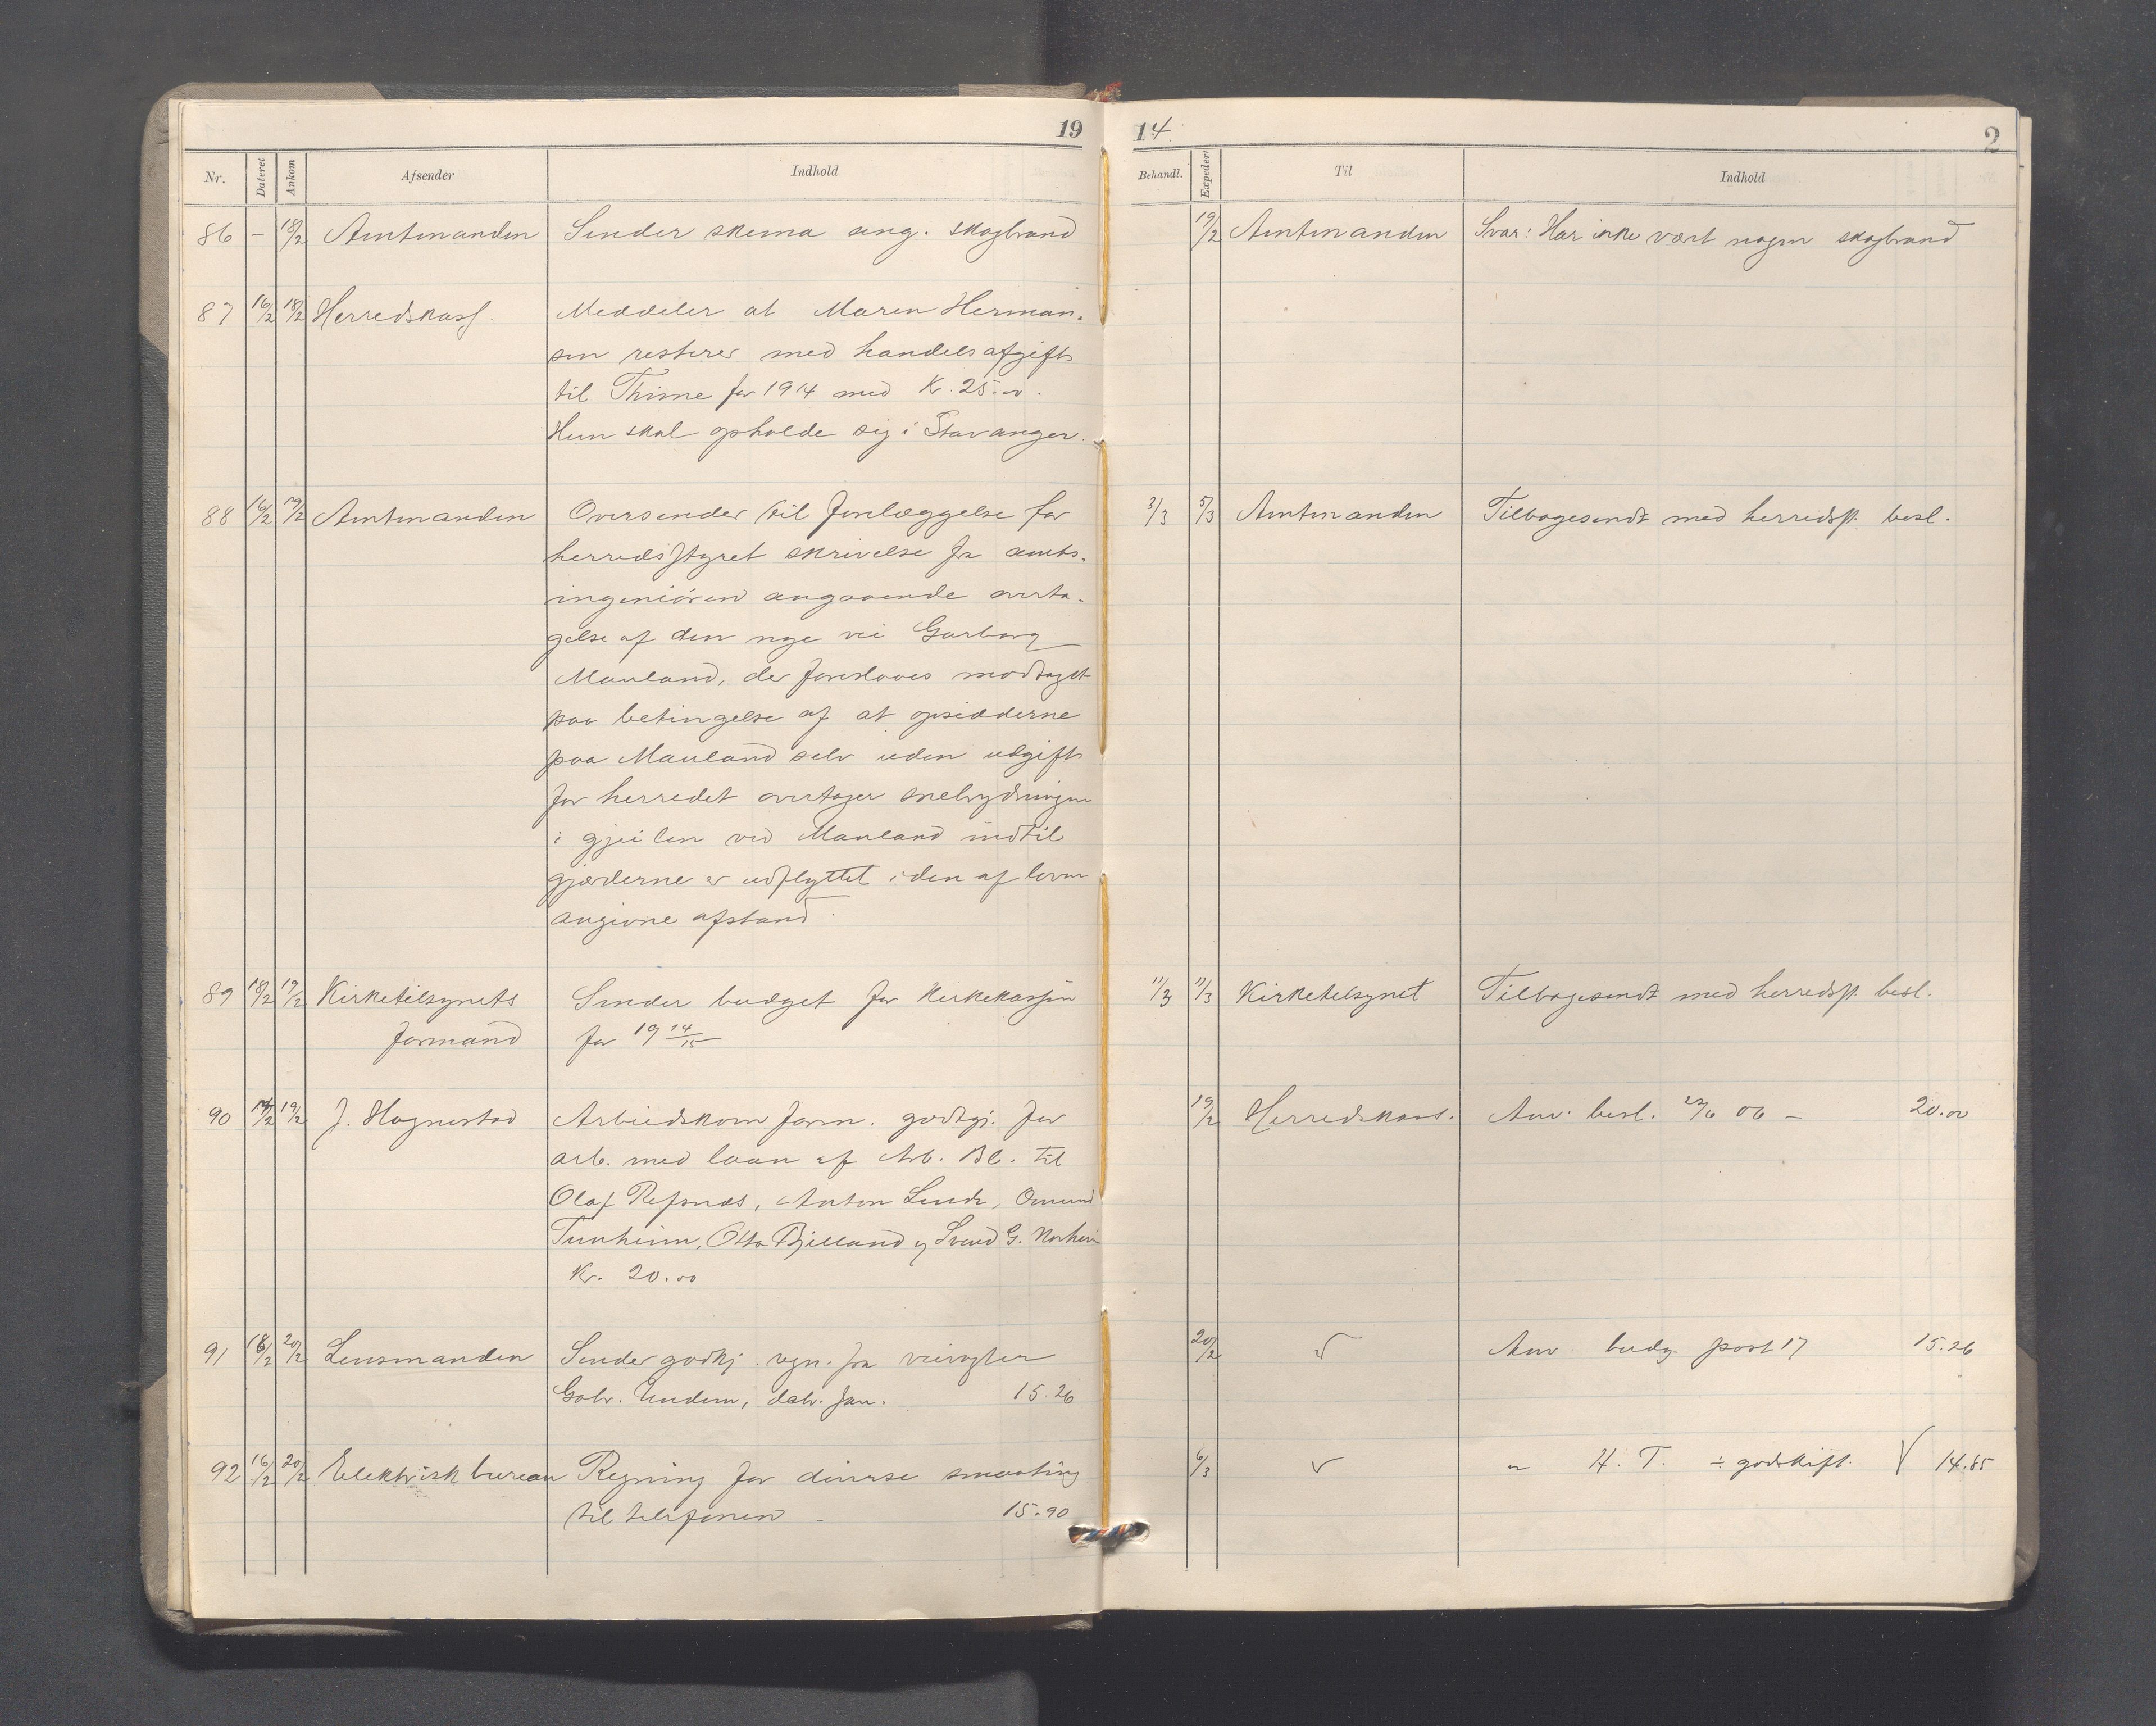 19
Nr. Dateret Ankom Afsender Indhold
86 – 18/2 Amtmanden Sender skema ang. skogbrand
87 16/2 18/2 Herredskass. Meddeler at Maren Herman-
sen resterer med handelsafgift
til Thime for 1914 med Kr. 25.00.
Hun skal opholde sig i Stavanger.
88 16/2 19/2 Amtmanden Oversender til forelæggelse for
herredsstyret skrivelse fra amts-
ingeniören angaaende overta-
gelse af den nye vei Garborg
Mauland, der foreslaaes modtaget
paa betingelse af at opsidderne
paa Mauland selv uden udgift
for herredet overtager snebrydningen
i gjeilen ved Mauland indtil
gjærderne er udflyttet i den af loven
angivne afstand.
89 18/2 19/2 Kirketilsynets Sender budget for kirkekassen
formand for 19 14/15
90 14/2 19/2 J. Hognestad Arbeidskom form. godtgj. for
arb. med laan af Arb. Bl. til
Olaf Refsnæs, Anton Lende, Omund
Tunheim, Otto Bjelland og Svend G. Norheim
Kr. 20.00
91 18/2 20/2 Lensmanden Sender godkj. regn. fra veivogter
Gabr. Undem, dat. Jan. 15.26
92 16/2 20/2 Elektrisk bureau Regning for diverse smaating
til telefonen – 15.90
14 2
Behandl. Expedert Til Indhold
19/2 Amtmanden Svar: Har ikke vært nogen skogbrand
3/3 5/3 Amtmanden Tilbagesendt med herredsst. besl.
11/3 11/3 Kirketilsynet Tilbagesendt med herredsst. besl.
19/2 Herredskass. Anv. besl. 22/6 06 – 20.00
20/2 Anv. budg. post 17 15.26
6/3 H. T. ÷ godskift. 14.85